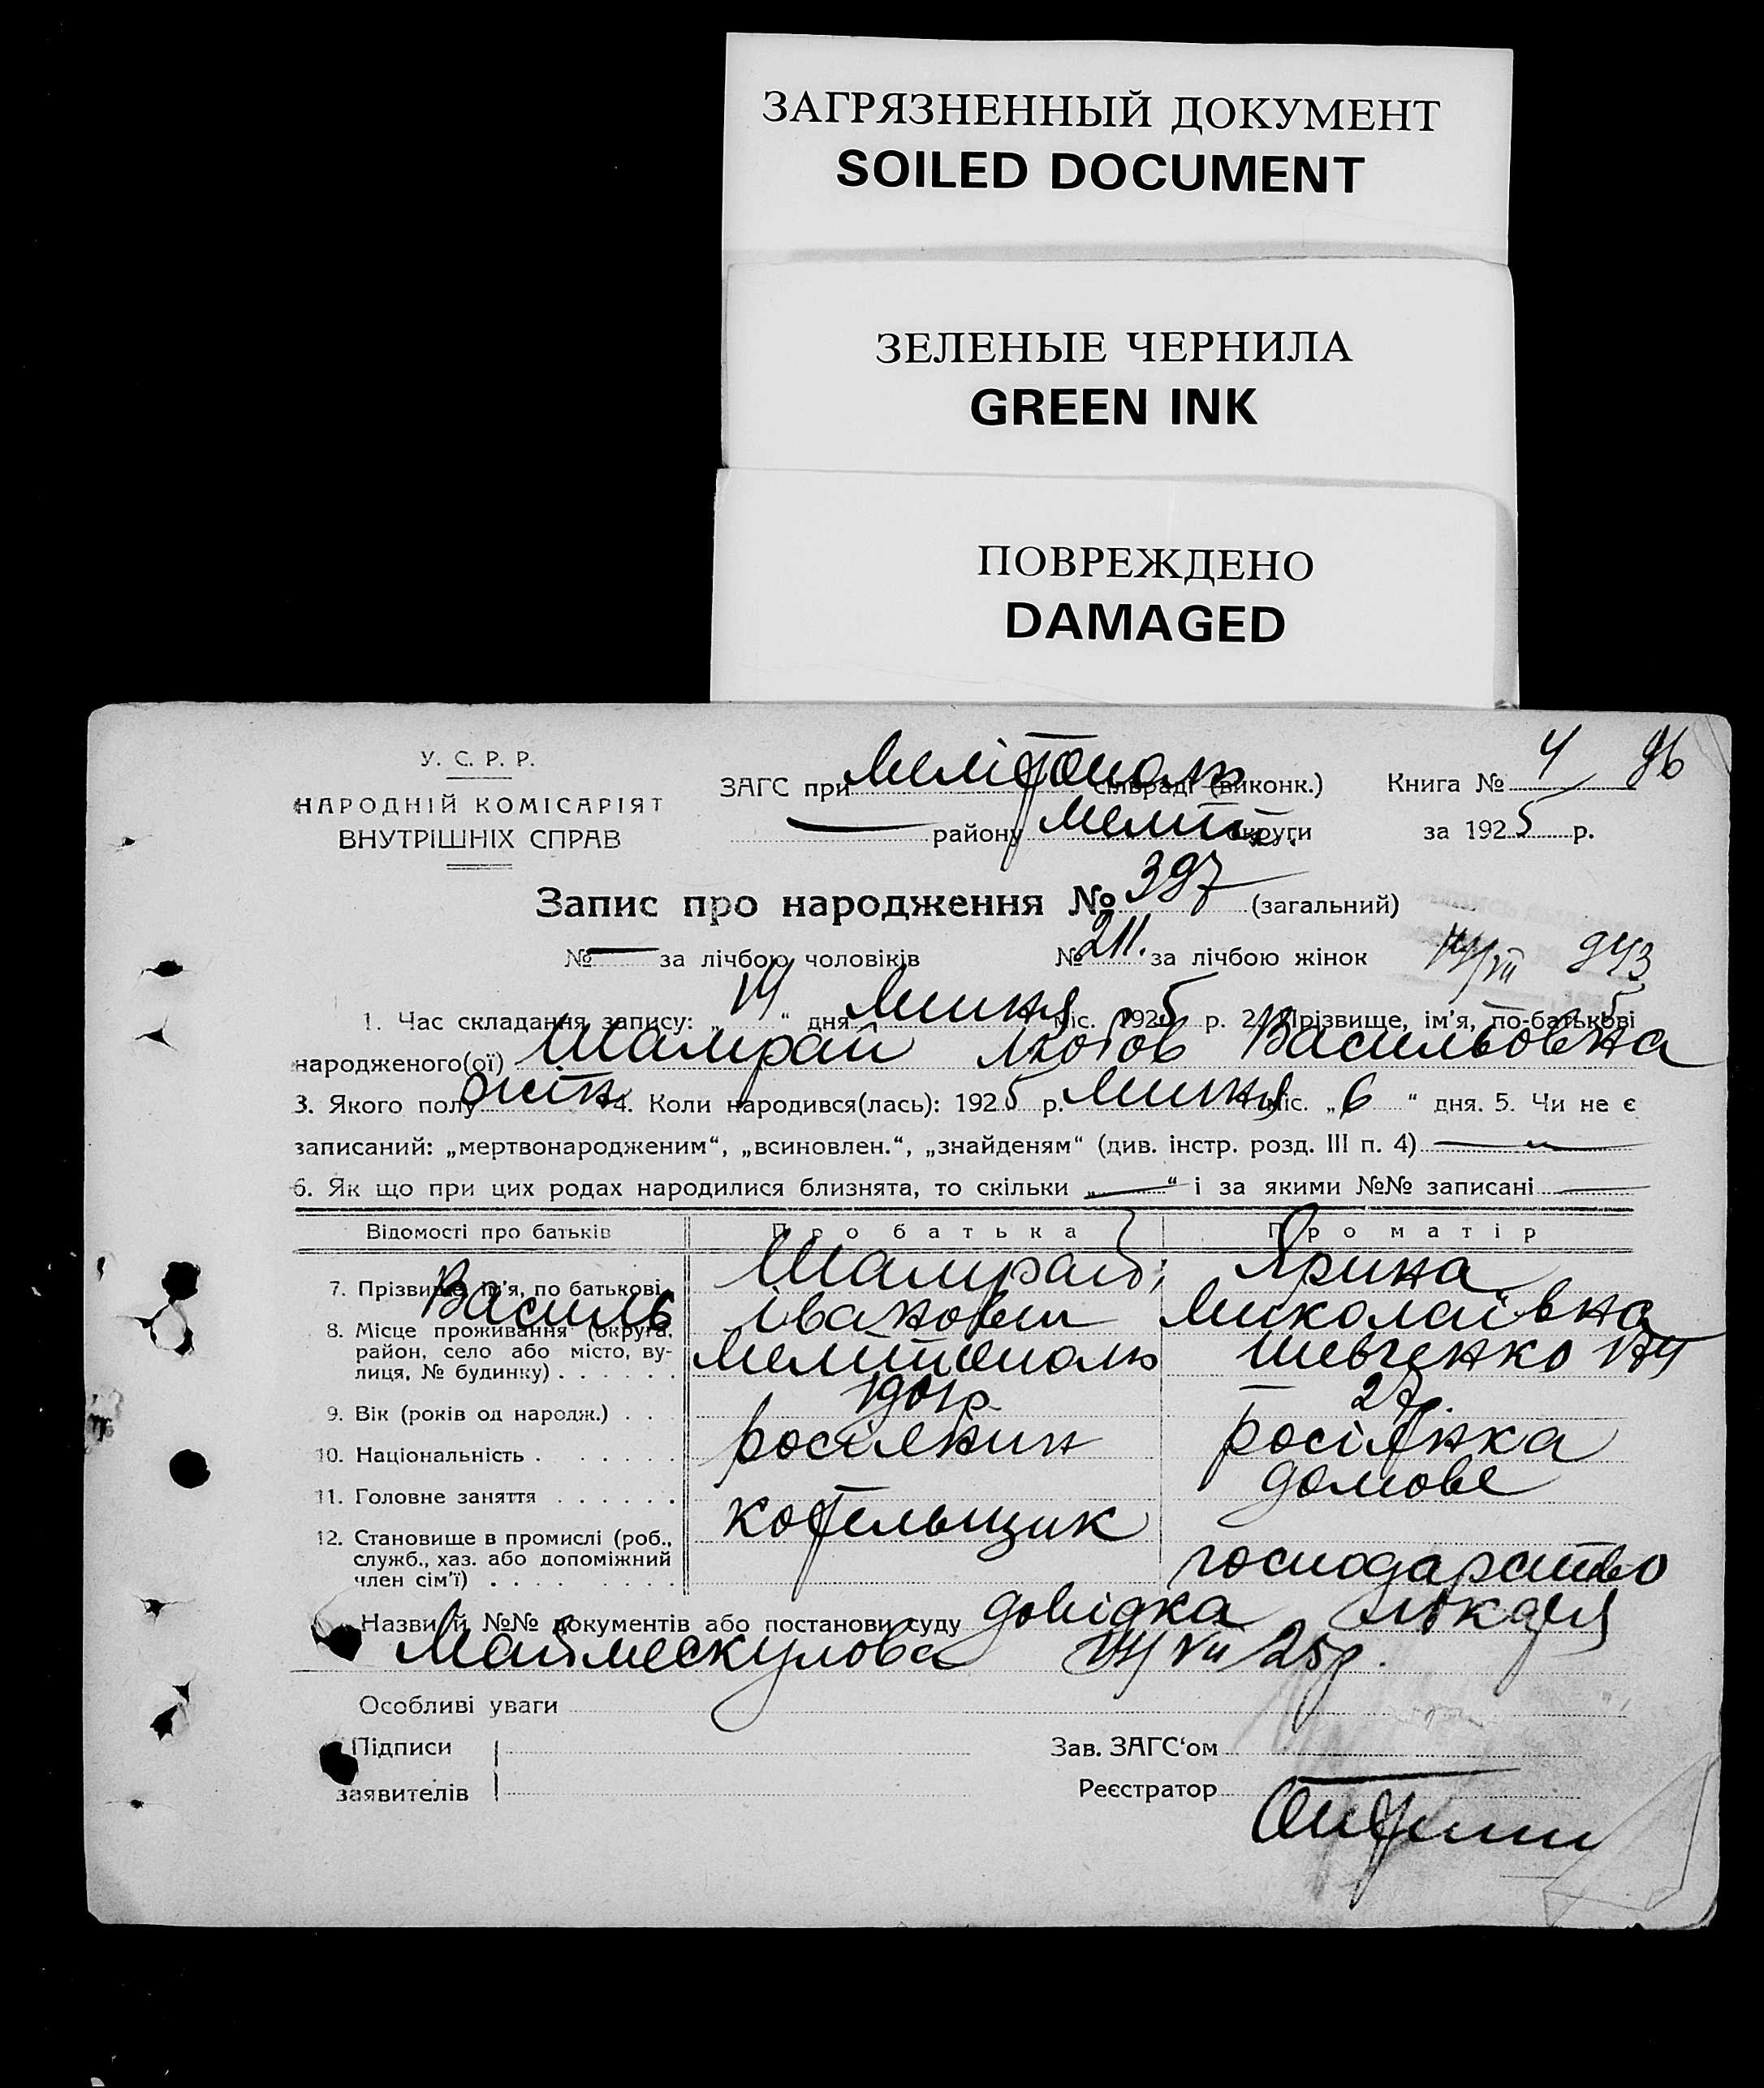 ЗАГРЯЗНЕННЫЙ ДОКУМЕНТ
SOILED DOCUMENT
ЗЕЛЕНЫЕ ЧЕРНИЛА
GREEN INK
ПОВРЕЖДЕНО
DAMAGED
У. С. Р. Р.
НАРОДНІЙ КОМІСАРІЯТ
ВНУТРІШНІХ СПРАВ
ЗАГС при Мелітополь сільраді (виконк.) Книга № 4 96
— району Меліт. округи за 1925 р.
Запис про народження № 397 (загальний)
№ — за лічбою чоловіків № 211. за лічбою жінок 14/VII 943
1. Час складання запису: „14“ дня Липня міс. 1925 р. 2. Прізвище, ім’я, по-батькові
народженого(ої) Шамрай Любов Васильовна
3. Якого полу жін 4. Коли народився(лась): 1925 р. Липня міс. „6“ дня. 5. Чи не є
записаний: „мертвонародженим“, „всиновлен.“, „знайденям“ (див. інстр. розд. III п. 4) —
6. Як що при цих родах народилися близнята, то скільки „—“ і за якими №№ записані —
Відомості про батьків Про батька Про матір
7. Прізвище, ім’я, по батькові Шамрай, Ярина
Василь Іванович Миколаівна
8. Місце проживання (округа, район, село або місто, ву-
лиця, № будинку) . . . . . . Мелітополь Шевченко 174
9. Вік (років од народж.) . . 1901р. 27р.
10. Національність . . . . . . росіянин росіянка
11. Головне заняття . . . . . . котельщик домове
12. Становище в промислі (роб.,
служб., хаз. або допоміжний
член сім’ї) . . . . . . господарство
Назви й №№ документів або постанови суду довідка лікаря
14/VII/25р.
Особливі уваги
Підписи Зав. ЗАГС‘ом
заявителів Реєстратор